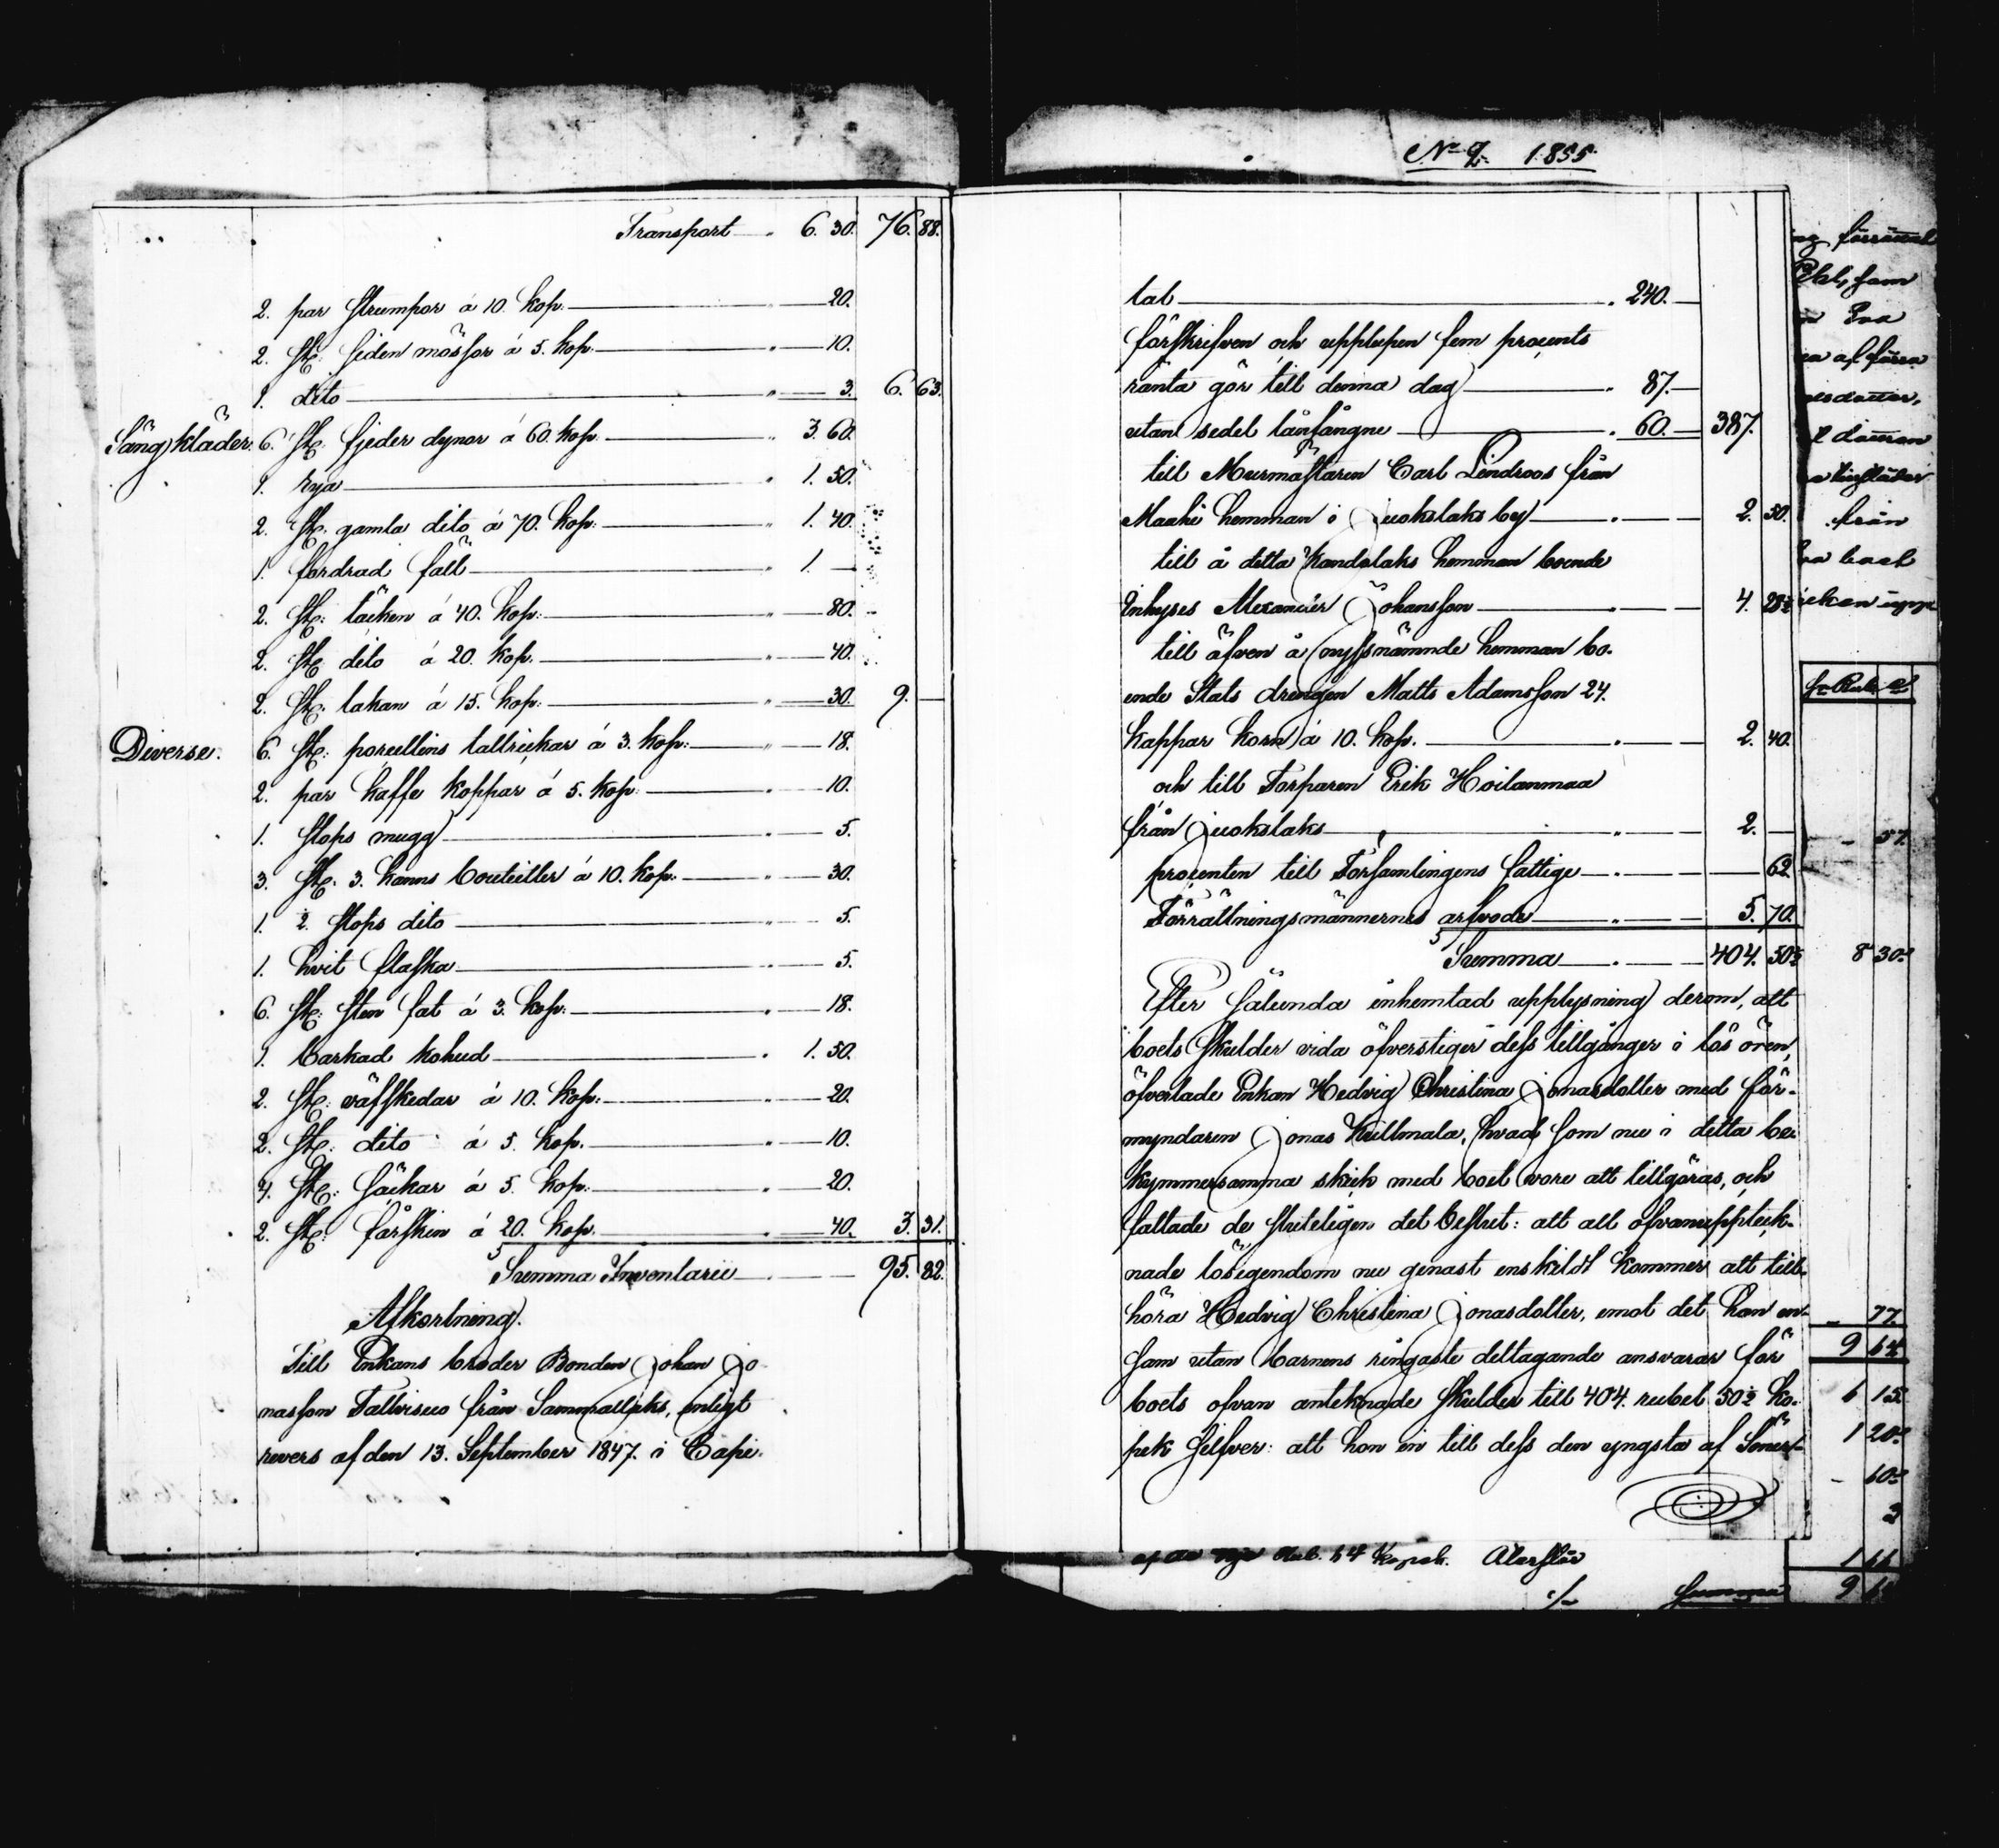 Transport 6. 30. 76. 88.
2. par strumpor á 10. kop. 20.
2. st: siden mössor á 5. kop. 10.
1. dito 3. 6. 63.
Sängkläder. 6. st: fjeder dynor á 60. kop. 3. 60.
1. rya 1. 50.
2. st. gamla dito á 70. kop: 1. 40.
1. fordrad fäll 1. —
2. st: täcken á 40. kop: 80.
2. st: dito á 20. kop. 40.
2. st: lakan á 15. kop: 30. 9. —
Diverse. 6. st: porcellins tallrickar á 3. kop: 18.
2. par kaffe koppar á 5. kop: 10.
1. stops mugg 5.
3. st. 3. kanns bouteiller á 10. kop. 30.
1. 2. stops dito 5.
1. hvit flaska 5.
6. st: sten fat á 3. kop. 18.
1. barkad kohud 1. 50.
2. st: väfskedar á 10. kop: 20.
2. st: dito á 5. kop. 10.
4. st: säckar á 5. kop: 20.
2. st: fårskin á 20. kop. 40. 3. 31.
Summa Inventarii 95. 82.
Afkortning.
Till Enkans broder Bonden Johan Jo-
nasson Tallvisuo från Sammatlaks, enligt
revers af den 13. September 1847. i Capi-
No 9. 1855.
tal 240. —
förskrifven och upplupen fem procents
ränta gör till denna dag 87. —
utan sedel lånfångne 60. — 387.
till Murmästaren Carl Lindroos från
Maahi hemman i Juokslaks by 2. 50.
till å detta Kandolaks hemman boende
Inhyses Alexander Johansson 4. 28½
till äfven å nyssnämnde hemman bo-
ende Stats drengen Matts Adamsson 24.
kappar korn á 10. kop. 2. 40.
och till Torparen Erik Hoilanmaa
från Juokslaks 2. —
procenten till Församlingens fattige 62
Förrättningsmännernes arfvode 5. 70.
Summa 404. 50½
Efter sålunda inhemtad upplysning derom, att
boets skulder vida öfverstiger dess tillgånger i lös ören,
öfverlade Enkan Hedvig Christina Jonasdotter med för-
myndaren Jonas Kullmala, hvad som nu i detta be-
kymmersamma skick med boet vore att tillgöras, och
fattade de sluteligen det beslut: att all ofvanuppteck-
nade lösegendom nu genast enskildt kommer att till-
höra Hedvig Christina Jonasdotter, emot det hon en-
sam utan barnens ringaste deltagande ansvarar för
boets ofvan antecknade skulder till 404. rubel 50½ ko-
pek silfver: att hon in till dess den yngsta af
förråd
som
Eva
dotter,
från
57.
8 30
77.
9 64
6 15
1 20
60
2
1 66
64 Kopek.
Summa 9